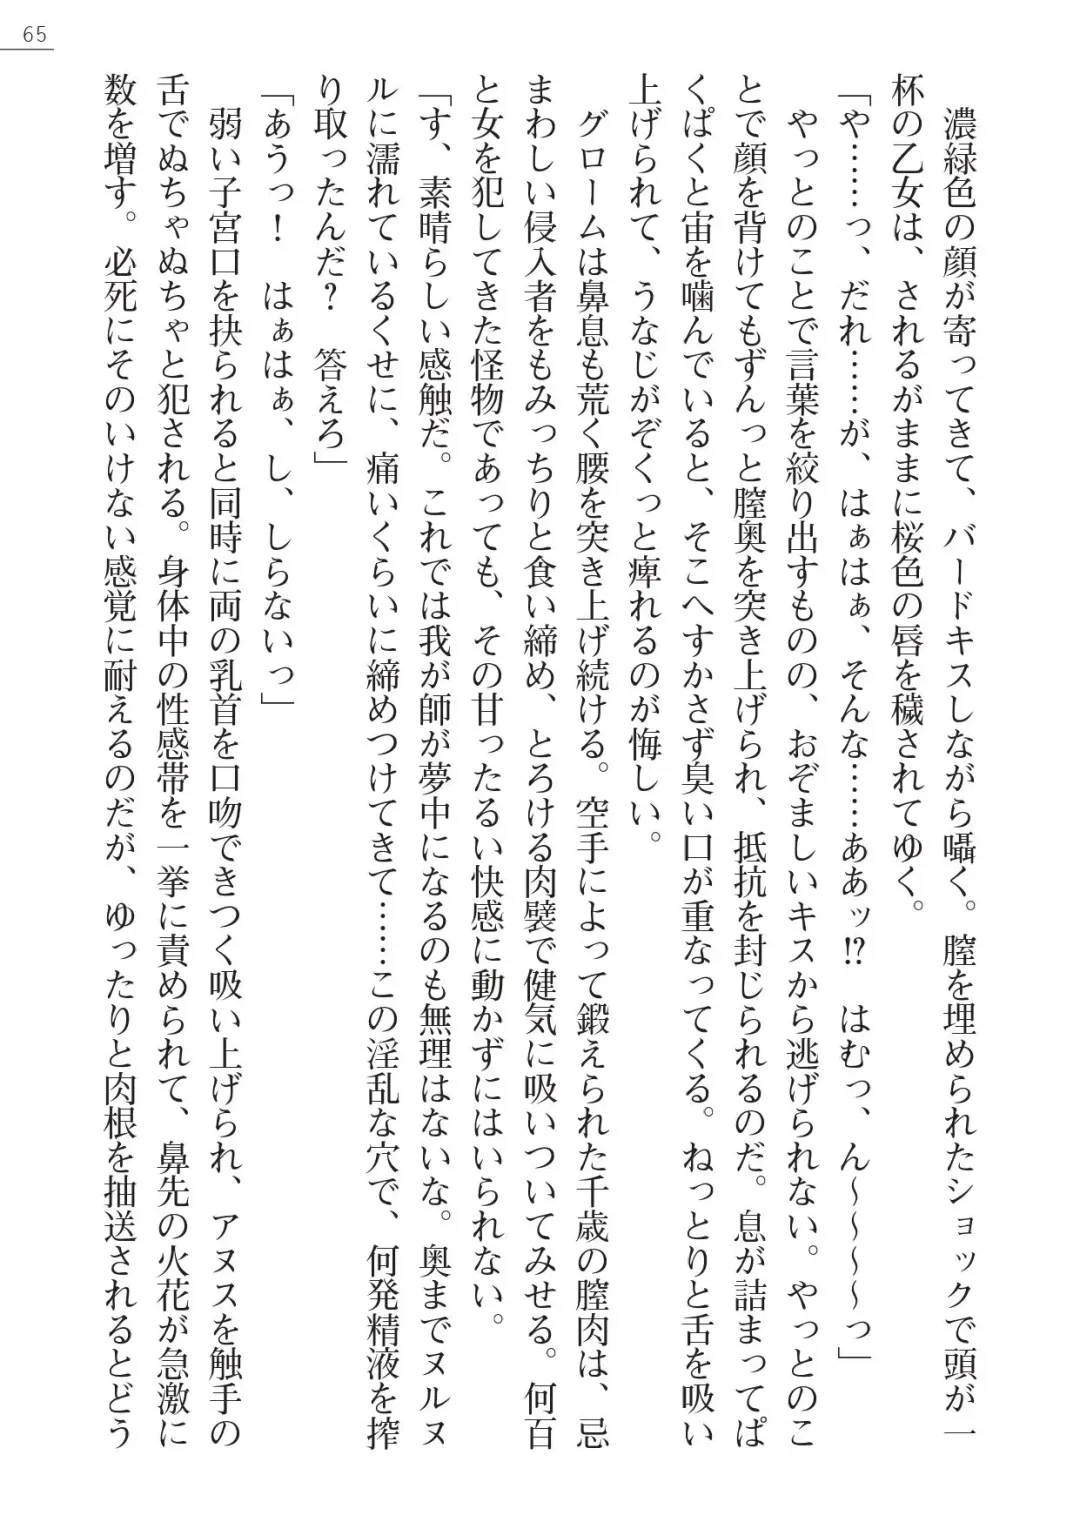 65
濃緑色の顔が寄ってきて、バードキスしながら囁く。膣を埋められたショックで頭が一
杯の乙女は、されるがままに桜色の唇を穢されてゆく。
「や……っ、だれ……が、はぁはぁ、そんな……ああッ!? はむっ、ん～～～～っ」
やっとのことで言葉を絞り出すものの、おぞましいキスから逃げられない。やっとのこ
とで顔を背けてもずんっと膣奥を突き上げられ、抵抗を封じられるのだ。息が詰まってぱ
くぱくと宙を噛んでいると、そこへすかさず臭い口が重なってくる。ねっとりと舌を吸い
上げられて、うなじがぞくっと痺れるのが悔しい。
グロームは鼻息も荒く腰を突き上げ続ける。空手によって鍛えられた千歳の膣肉は、忌
まわしい侵入者をもみっちりと食い締め、とろける肉襞で健気に吸いついてみせる。何百
と女を犯してきた怪物であっても、その甘ったるい快感に動かずにはいられない。
「す、素晴らしい感触だ。これでは我が師が夢中になるのも無理はないな。奥までヌルヌ
ルに濡れているくせに、痛いくらいに締めつけてきて……この淫乱な穴で、何発精液を搾
り取ったんだ？ 答えろ」
「あうっ！ はぁはぁ、し、しらないっ」
弱い子宮口を抉られると同時に両の乳首を口吻できつく吸い上げられ、アヌスを触手の
舌でぬちゃぬちゃと犯される。身体中の性感帯を一挙に責められて、鼻先の火花が急激に
数を増す。必死にそのいけない感覚に耐えるのだが、ゆったりと肉根を抽送されるとどう